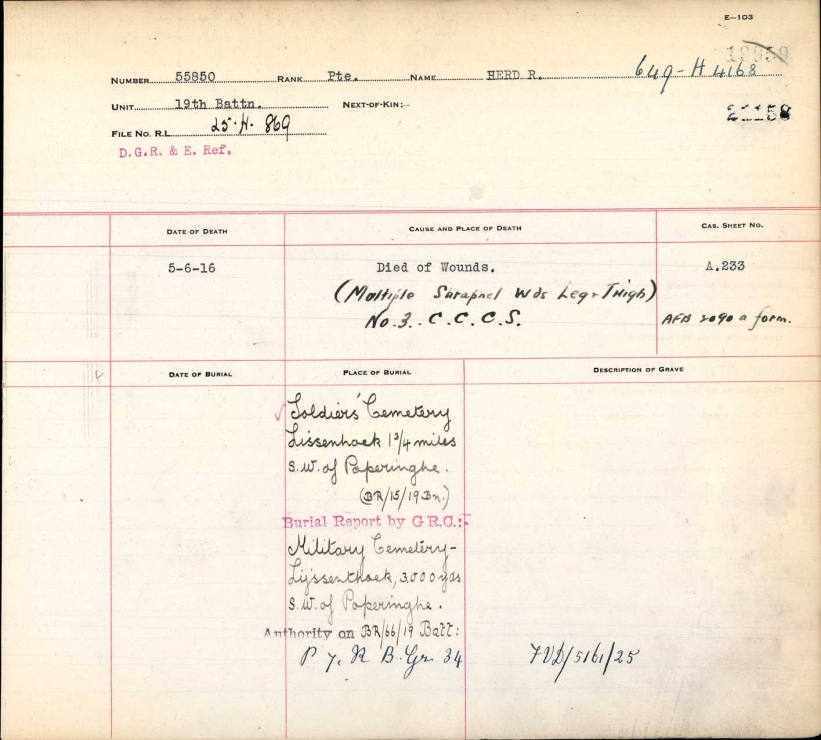 E—103
NUMBER 55850 RANK Pte. NAME HERD R. 649-H 4168
UNIT 19th Battn. NEXT-OF-KIN:-
FILE NO. R.L. 25·H· 869
D.G.R. & E. Ref.
DATE OF DEATH CAUSE AND PLACE OF DEATH CAS. SHEET NO.
5-6-16 Died of Wounds. A.233
(Multiple Shrapnel Wds Leg + Thigh)
No. 3. C.C.C.S. AFB 2090 a form.
DATE OF BURIAL PLACE OF BURIAL DESCRIPTION OF GRAVE
Soldiers' Cemetery
Lissenhoek 1 3/4 miles
S.W. of Poperinghe.
(BR/15/19 Bn.)
Burial Report by G R.C.:-
Military Cemetery-
Lijssenthoek, 3000 yds
S.W. of Poperinghe.
Authority on BR/66/19 Batt:
P 7. R B. Gr. 34 7VD/5161/25